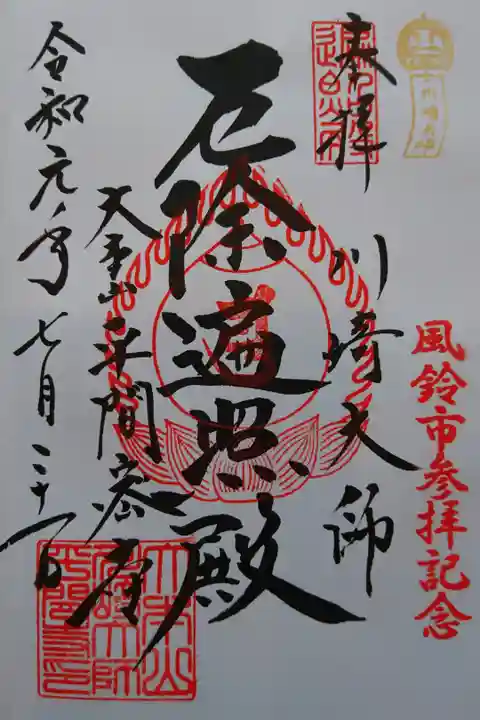 風鈴市参拝記念
奉拝
川崎大師
厄除遍照殿
大本山平間寺
令和元年七月二十一日